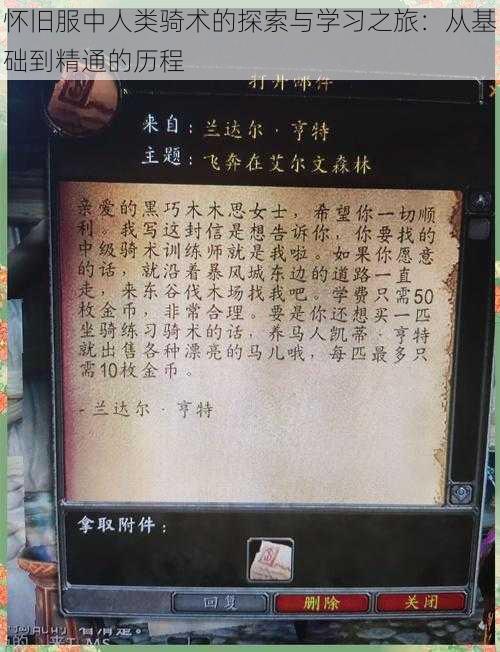 怀旧服中人类骑术的探索与学习之旅：从基
础到精通的历程
打开邮件
来自：兰达尔·亨特
主题：飞奔在艾尔文森林
亲爱的黑巧木木思女士，希望你一切顺
利。我写这封信是想告诉你，你要找的
中级骑术训练师就是我啦。如果你愿意
的话，就沿着暴风城东边的道路一直
走，来东谷伐木场找我吧。学费只需50
枚金币，非常合理。要是你还想买一匹
坐骑练习骑术的话，养马人凯蒂·亨特
就出售各种漂亮的马儿哦，每匹最多只
需10枚金币。
-兰达尔·亨特
拿取附件：
回复 删除 关闭
看清楚。